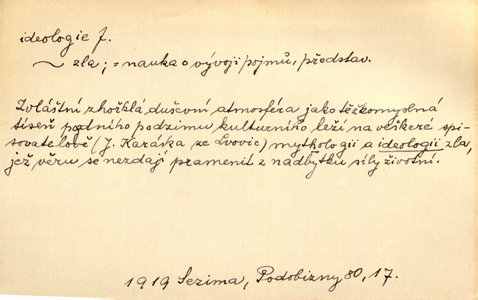 ideologie f.
~ zla; = nauka o vývoji pojmů, představ.
Zvláštní zhořklá duševní atmosféra jako těžkomyslná
tíseň pozdního podzimu kulturního leží na veškeré spi-
sovatelově (J. Karáska ze Lvovic) mythologii a ideologii zla,
jež věru se nezdají pramenit z nadbytku síly životní.
1919 Sezima, Podobizny 80, 17.